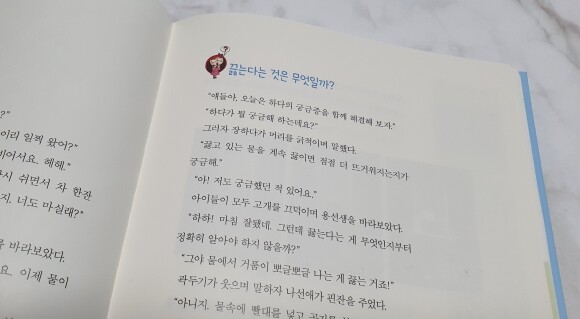 ?"
이리 일찍 왔어?"
비어서요. 헤헤."
시 쉬면서 차 한잔
지. 너도 마실래?"
바라보았다.
요. 이제 물이
?
끓는다는 것은 무엇일까?
"얘들아, 오늘은 하다의 궁금증을 함께 해결해 보자."
"하다가 뭘 궁금해 하는데요?"
그러자 장하다가 머리를 긁적이며 말했다.
"끓고 있는 물을 계속 끓이면 점점 더 뜨거워지는지가
궁금해."
"아! 저도 궁금했던 적 있어요."
아이들이 모두 고개를 끄덕이며 용선생을 바라보았다.
"하하! 마침 잘됐네. 그런데 끓는다는 게 무엇인지부터
정확히 알아야 하지 않을까?"
"그야 물에서 거품이 뽀글뽀글 나는 게 끓는 거죠!"
곽두기가 웃으며 말하자 나선애가 핀잔을 주었다.
"아니지. 물속에 빨대를 넣고 공기를